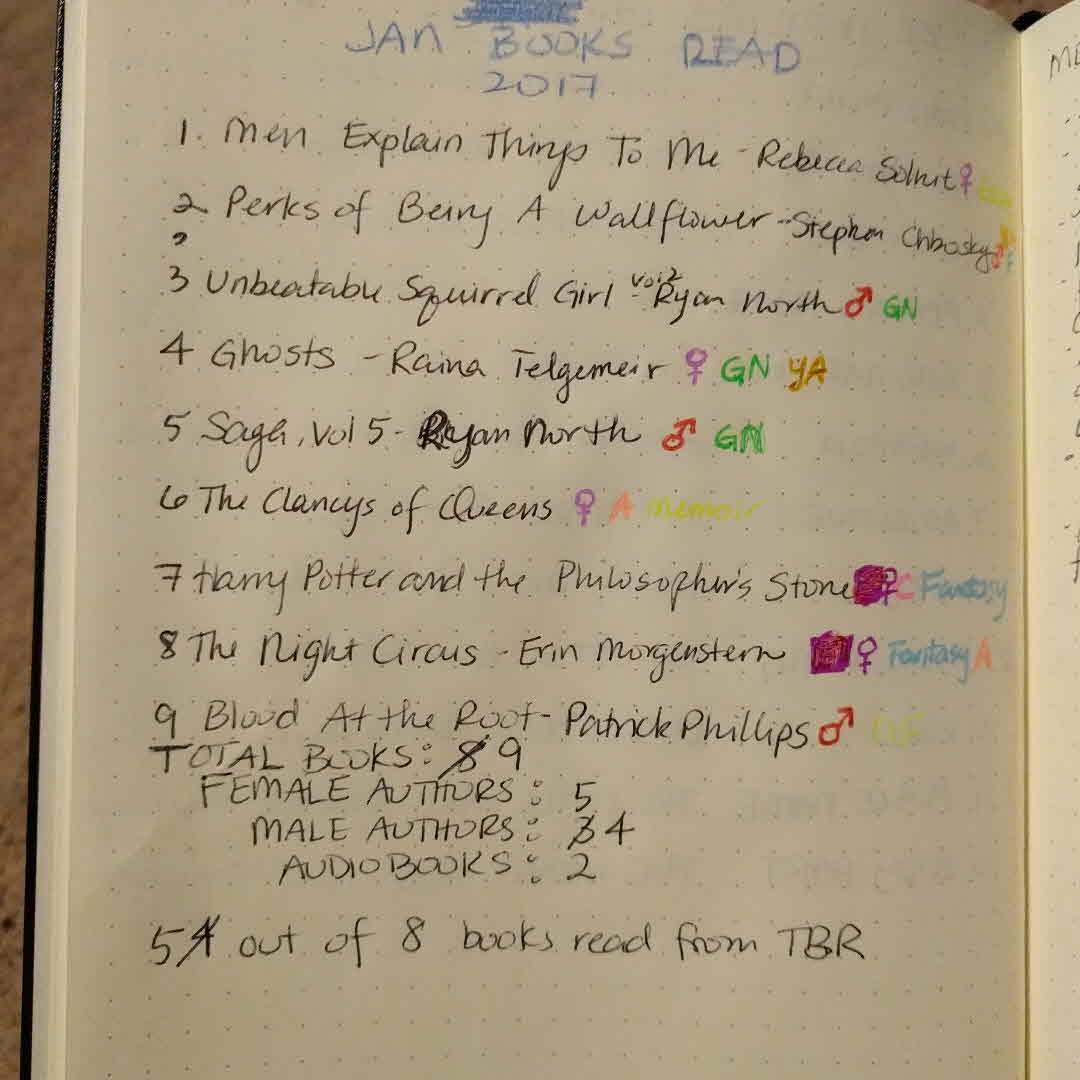 JAN BOOKS READ
2017
1. Men Explain Things To Me - Rebecca Solnit ♀
2 Perks of Being A Wallflower - Stephen Chbosky ♂
3 Unbeatable Squirrel Girl vol 2 - Ryan North ♂ GN
4 Ghosts - Raina Telgemeir ♀ GN YA
5 Saga, Vol 5 - Ryan North ♂ GN
6 The Clancys of Queens ♀ A memoir
7 Harry Potter and the Philosopher's Stone ♀ C Fantasy
8 The Night Circus - Erin Morgenstern ♀ Fantasy A
9 Blood At the Root - Patrick Phillips ♂
TOTAL BOOKS: 8 9
FEMALE AUTHORS: 5
MALE AUTHORS: 3 4
AUDIOBOOKS: 2
5 4 out of 8 books read from TBR